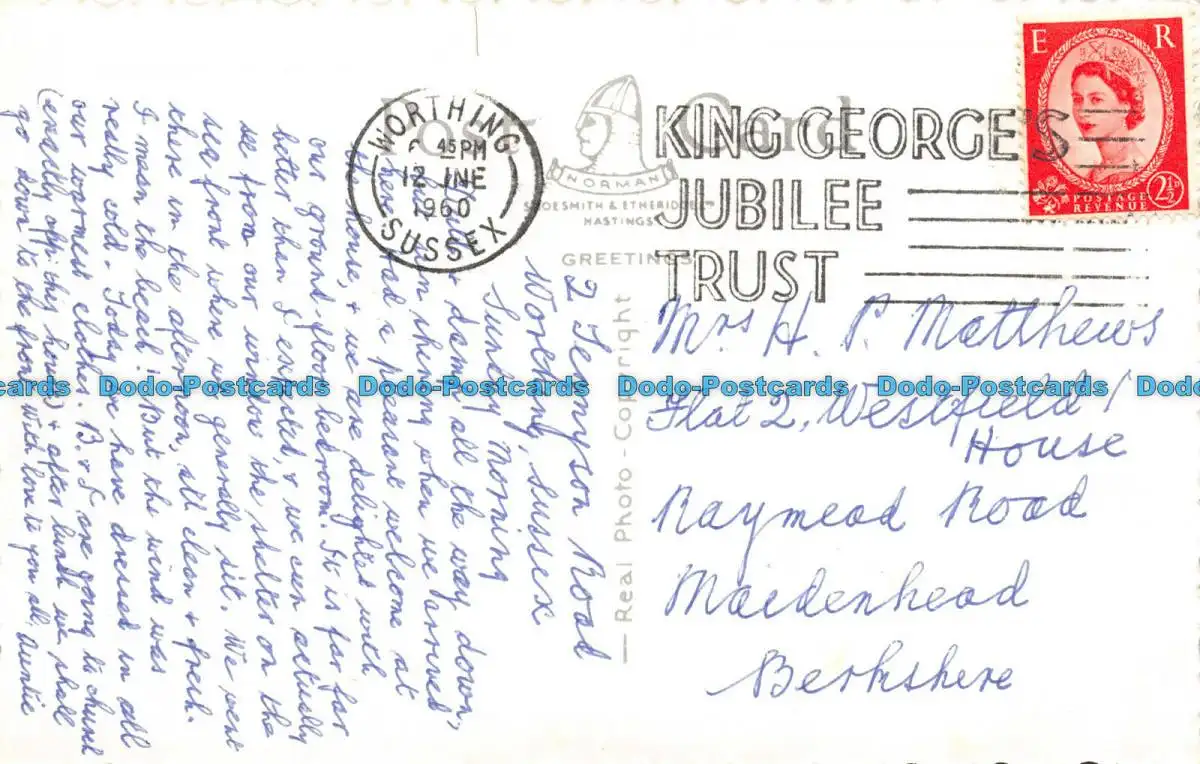 Post Card
NORMAN
SHOESMITH & ETHERIDGE LTD
HASTINGS
GREETINGS
Real Photo - Copyright
WORTHING
45PM
12 JNE
1960
SUSSEX
KING GEORGE'S
JUBILEE
TRUST
E R
POSTAGE
REVENUE
2½D
2 Tennyson Road
Worthing, Sussex
Sunday Morning
& damp all the way down,
when we arrived
had a pleasant welcome at
& we are delighted with
our ground-floor bedroom. It is far far
better than I expected, & we can actually
see from our window the shelter on the
sea front where we generally sit. We went
there in the afternoon, all clean & fresh.
I mean the beach! But the wind was
really cold. Today we have dressed in all
our warmest clothes. B. & I are going to church
(exactly opp: this house) & after lunch we shall
go down to the front. With love to you all, Auntie
Mrs H. P. Matthews
Flat 2, Westfield
House
Raymead Road
Maidenhead
Berkshire
Dodo-Postcards Dodo-Postcards Dodo-Postcards Dodo-Postcards Dodo-Postcards